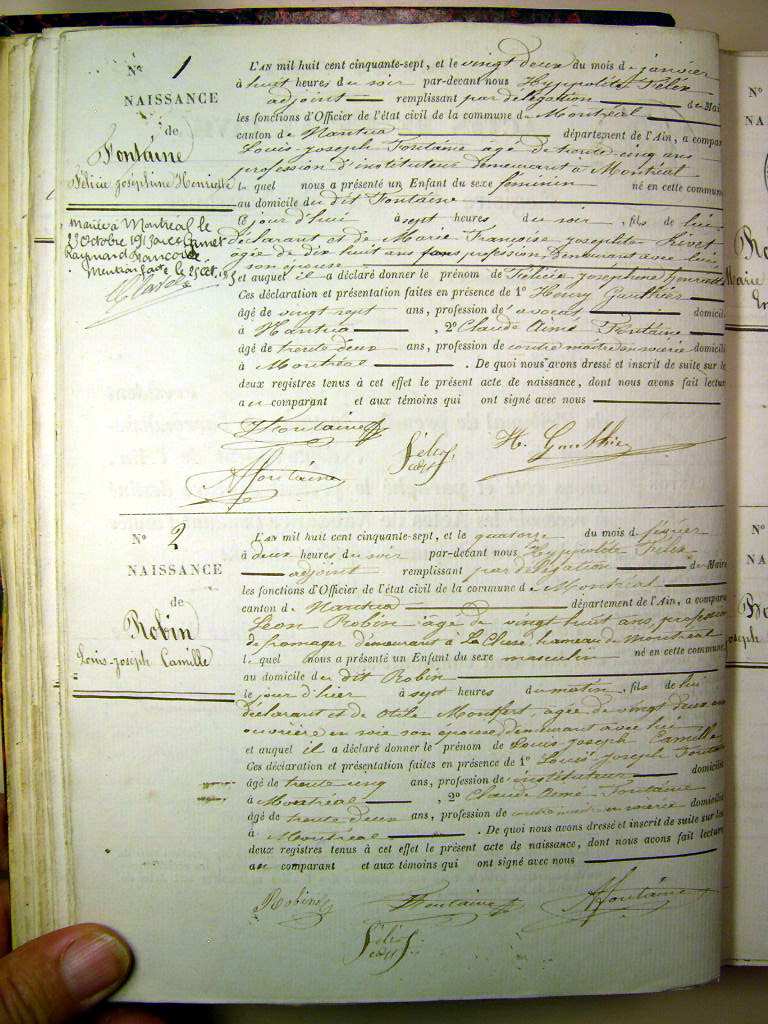 N° 1
NAISSANCE
de
Fontaine
Félicie Joséphine Henriette
Mariée à Montréal le
Mention faite le
L'AN mil huit cent cinquante-sept, et le vingt deux du mois d e janvier
à huit heures du soir par-devant nous Hyppolite Félix
adjoint remplissant par délégation du Mai
les fonctions d'Officier de l'état civil de la commune d e Montréal
canton de Nantua département de l'Ain, a compa
Louis-Joseph Fontaine agé de trente cinq ans
profession d'instituteur demeurant à Montréal
l quel nous a présenté un Enfant du sexe féminin né en cette commun
au domicile du dit Fontaine
le jour d'hui à sept heures du soir, fils de lui
déclarant et de Marie Françoise Josephte
agée de dix huit ans sans profession, demeurant avec lui
son épouse
et auquel il a déclaré donner le prénom de Félicie Joséphine Henriette
Ces déclaration et présentation faites en présence de 1° Henry Gauthier
âgé de vingt sept ans, profession d'avocat domicili
à Nantua, 2° Claude Aimé Fontaine
âgé de trente deux ans, profession de contre maitre en soierie domicili
à Montréal. De quoi nous avons dressé et inscrit de suite sur le
deux registres tenus à cet effet le présent acte de naissance, dont nous avons fait lectur
au comparant et aux témoins qui ont signé avec nous
Fontaine
Félix H. Gauthier
adjt
AFontaine
N° 2
NAISSANCE
de
Robin
Louis-Joseph Camille
L'AN mil huit cent cinquante-sept, et le quatorze du mois d e février
à deux heures du soir par-devant nous Hyppolite Félix
adjoint remplissant par délégation du Maire
les fonctions d'Officier de l'état civil de la commune d e Montréal
canton de Nantua département de l'Ain, a comparu
Léon Robin agé de vingt huit ans, profession
de fromager demeurant à hameau de Montréal
l quel nous a présenté un Enfant du sexe masculin né en cette commune
au domicile du dit Robin
le jour d'hier à sept heures du matin, fils de lui
déclarant et de Otile Monfort, agée de vingt deux ans
ouvrière en soie son épouse, demeurant avec lui
et auquel il a déclaré donner le prénom de Louis Joseph Camille
Ces déclaration et présentation faites en présence de 1° Louis Joseph Fontaine
âgé de trente cinq ans, profession de instituteur domicilié
à Montréal, 2° Claude Aimé Fontaine
âgé de trente deux ans, profession de contre maitre en soierie domicilié
à Montréal. De quoi nous avons dressé et inscrit de suite sur les
deux registres tenus à cet effet le présent acte de naissance, dont nous avons fait lecture
au comparant et aux témoins qui ont signé avec nous
Robin Fontaine AFontaine
Félix
adjt